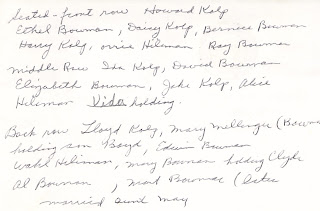 Seated-front row Howard Kolp
Ethel Bowman, Daisy Kolp, Bernice Bowman
Harry Kolp, Orrie Hileman Ray Bowman
Middle Row Ida Kolp, David Bowman
Elizabeth Bowman, Jake Kolp, Alice
Hileman Vida holding.
Back row Lloyd Kolp, Mary Mellinger (Bowman
holding son Boyd, Edwin Bowman
Wahl Hileman, Mary Bowman holding Clyde
Al Bowman, Mart Bowman (later
married Aunt May